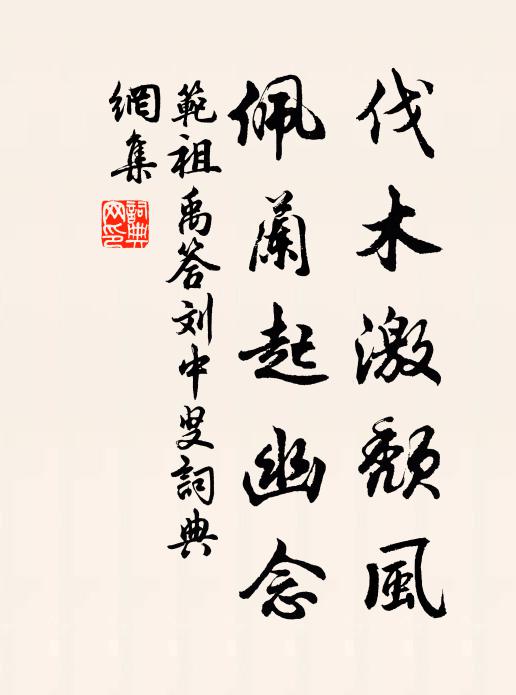 伐木激頹風
佩蘭起幽念
範祖禹答刘中叟詞典
網集
詞典
网印